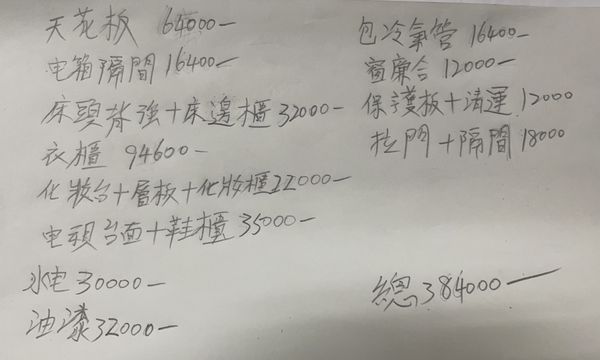 天花板 64000-
电箱隔間 16400-
床頭背強+床邊櫃 32000-
衣櫃 94600-
化妝台+層板+化妝櫃 22000-
电視台面+鞋櫃 35000-
水电 30000-
油漆 32000-
包冷氣管 16400-
窗簾合 12000-
保護板+清運 12000
拉門+隔間 18000
總 384000-